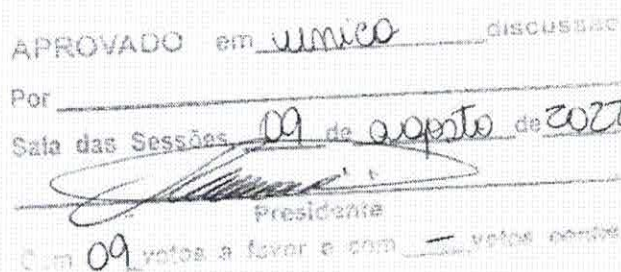 APROVADO em unica discussão
Por
Sala das Sessões, 09 de agosto de 2022
Presidente
Com 09 votos a favor e com — votos contra